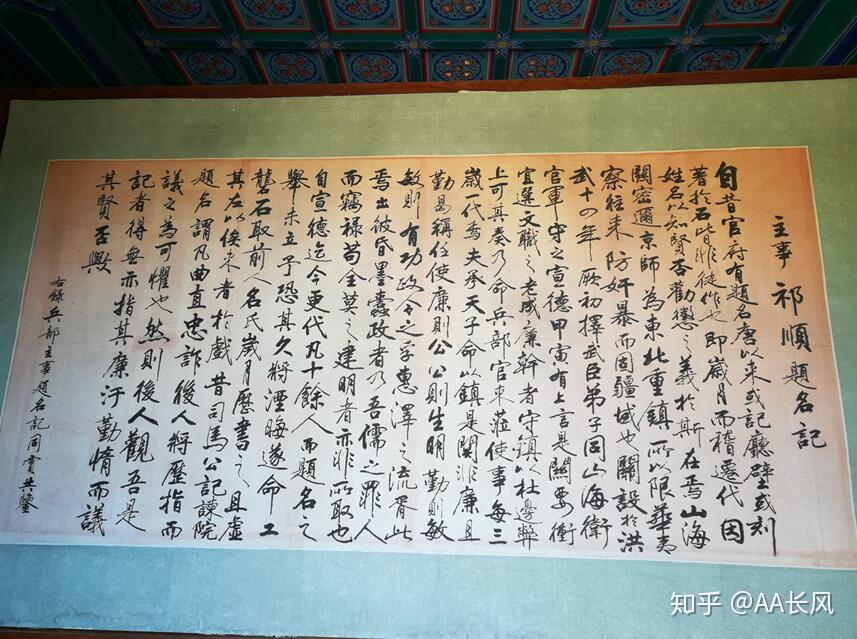 主事祁順題名記
自昔官府有題名唐以來或記廳壁或刻
著於石皆非徒作也即歲月而稽遷代因
姓名以知賢否勸懲之義於斯在焉山海
關密邇京師為東北重鎮所以限華夷
察往來防奸暴而固疆域也關設於洪
武十四年厥初擇武臣弟子同山海衛
官軍守之宣德甲寅有上言是關要衝
宜選文職之老成廉幹者守鎮以杜邊弊
上可其奏乃命兵部官來蒞使事每三
歲一代焉夫承天子命以鎮是關非廉且
勤曷稱任使廉則公公則生明勤則敏
敏則有功政令之孚惠澤之流胥此
焉出彼昏墨蠹政者乃吾儒之罪人
而竊祿苟全莫之建明者亦非所取也
自宣德迄今更代凡十餘人而題名之
舉未立予恐其久將湮晦遂命工
礱石取前人名氏歲月歷書之且虛
其左以俟來者於戲昔司馬公記諫院
題名謂凡曲直忠詐後人將歷指而
議之為可懼也然則後人觀吾是
記者得無亦指其廉汙勤惰而議
其賢否歟
右錄兵部主事題名記同賞共鑒
知乎 @AA长风